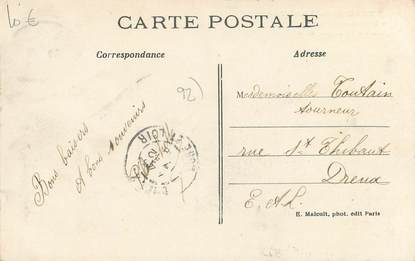 10 €
CARTE POSTALE
Correspondance
Adresse
92)
Bons baisers
& bons souvenirs
Mesdemoiselles Toutain
tourneur
rue St Thibaut
Dreux
E. & L.
E. Malcuit, phot. edit Paris